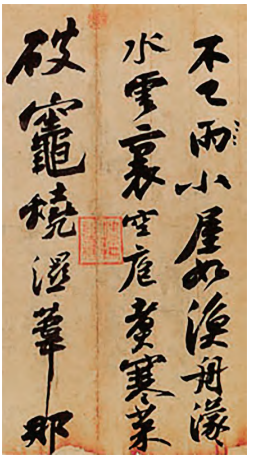 不已雨小屋如漁舟濛
水雲裏空庖煮寒菜
破竈燒濕葦那